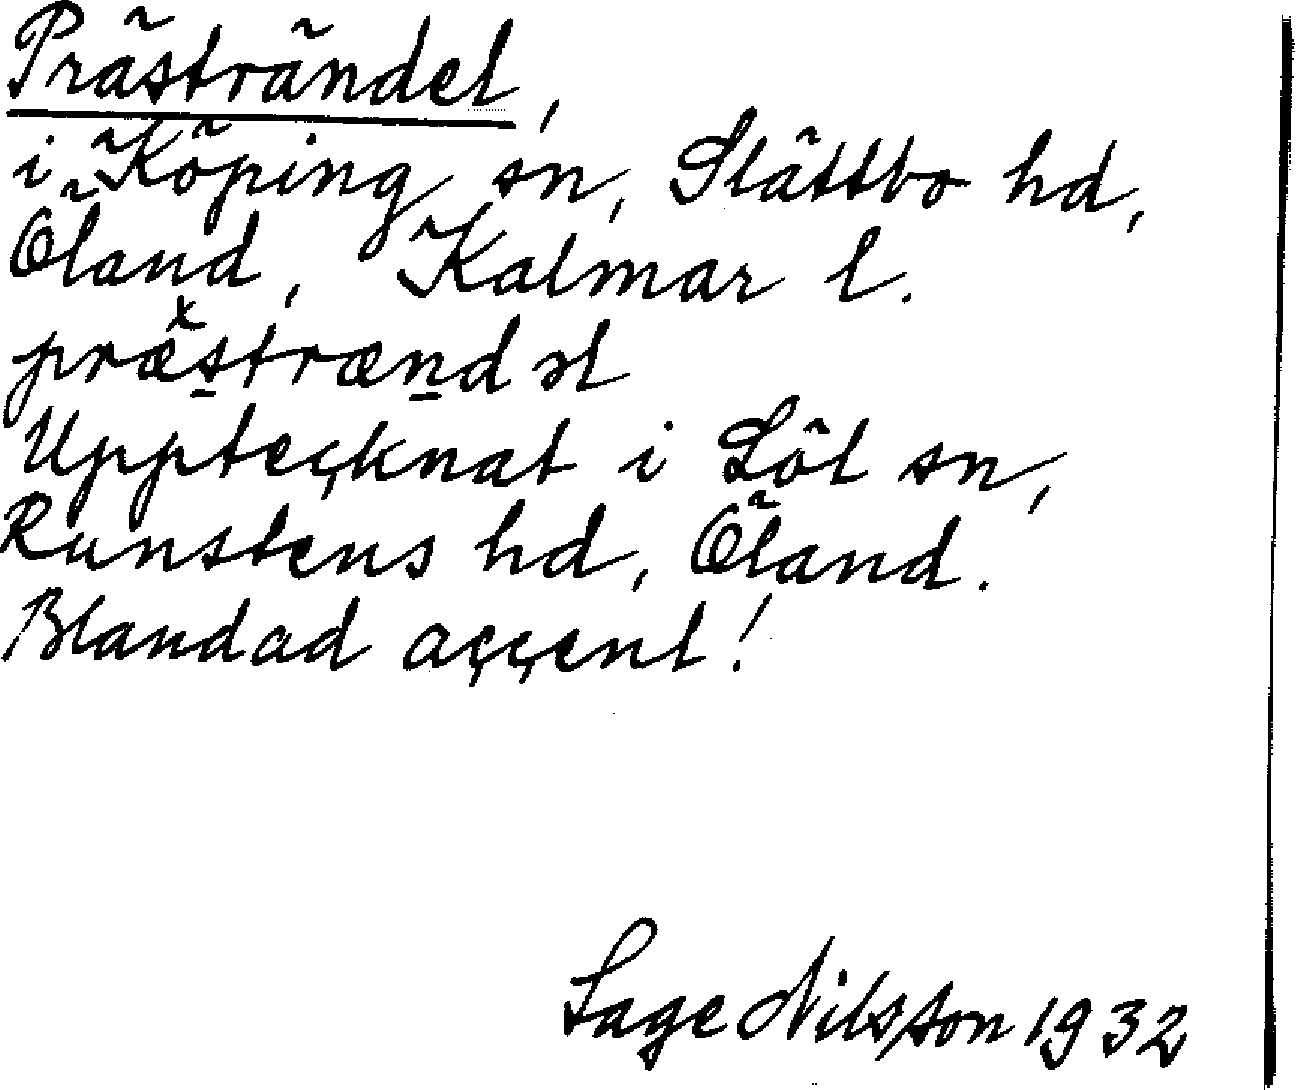 Prästrändel,
i Köping sn, Slättbo hd,
Öland, Kalmar l.
præ̆s̠træn̠dəl
Upptecknat i Löt sn,
Runstens hd, Öland.
Blandad accent!
Sage Nilsson 1932